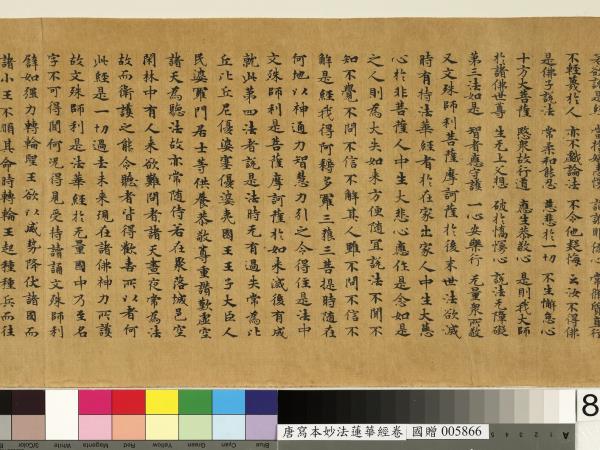 若欲說是經 當捨嫉恚慢 諂誑邪偽心 常脩質直行
不輕蔑於人 亦不戲論法 不令他疑悔 云汝不得佛
是佛子說法 常柔和能忍 慈悲於一切 不生懈怠心
十方大菩薩 愍衆故行道 應生恭敬心 是則我大師
於諸佛世尊 生无上父想 破於憍慢心 說法无障礙
第三法如是 智者應守護 一心安樂行 无量衆所敬
又文殊師利菩薩摩訶薩於後末世法欲滅
時有持法華經者於在家出家人中生大慈
心於非菩薩人中生大悲心應作是念如是
之人則為大失如來方便隨宜說法不聞不
知不覺不問不信不解其人雖不問不信不
解是經我得阿耨多羅三藐三菩提時隨在
何地以神通力智慧力引之令得住是法中
文殊師利是菩薩摩訶薩於如來滅後有成
就此第四法者說是法時无有過失常為比
丘比丘尼優婆塞優婆夷國王王子大臣人
民婆羅門居士等供養恭敬尊重讚歎虛空
諸天為聽法故亦常隨侍若在聚落城邑空
閑林中有人來欲難問者諸天晝夜常為法
故而衛護之能令聽者皆得歡喜所以者何
此經是一切過去未來現在諸佛神力所護
故文殊師利是法華經於无量國中乃至名
字不可得聞何況得見受持讀誦文殊師利
譬如强力轉輪聖王欲以威勢降伏諸國而
諸小王不順其命時轉輪王起種種兵而往
3/Color White Magenta Red Yellow Green Cyan Blue
唐寫本妙法蓮華經卷 國贈 005866
8